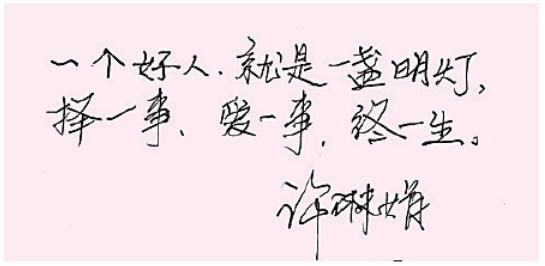 一个好人.就是一盏明灯,
择一事、爱一事,终一生。
许琳娟